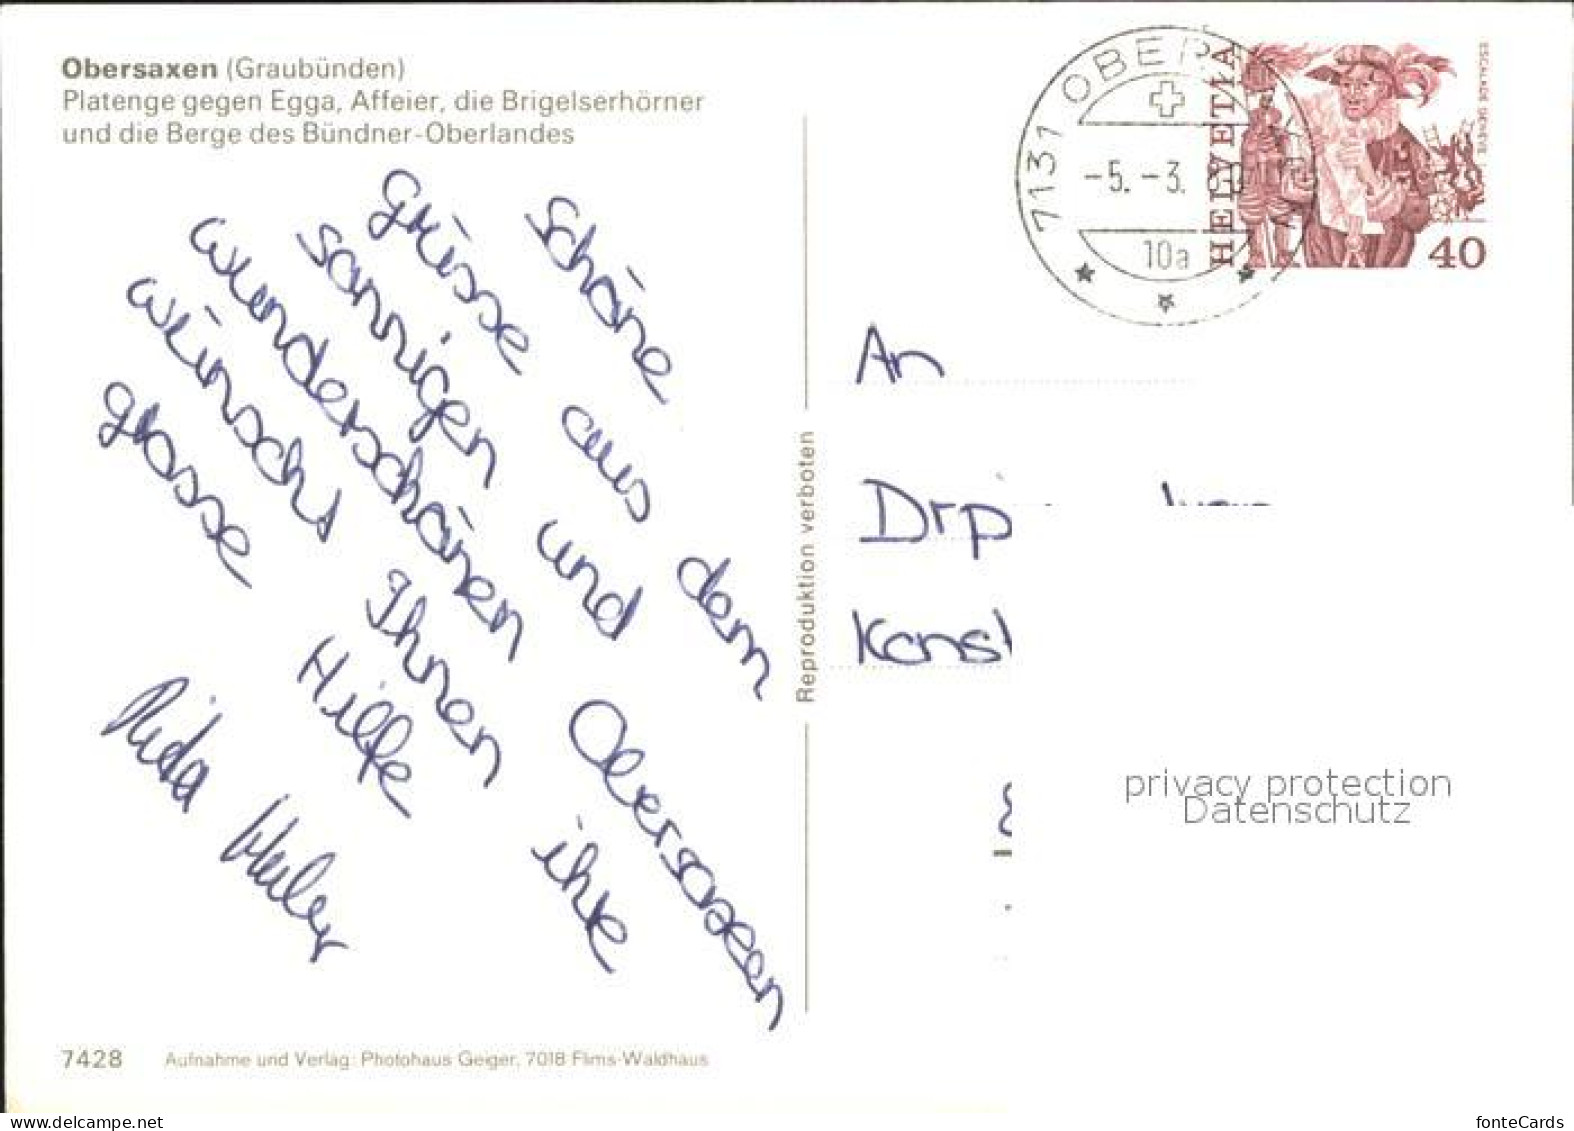 Obersaxen (Graubünden)
Platenge gegen Egga, Affeier, die Brigelserhörner
und die Berge des Bündner-Oberlandes
Schöne
Grüsse aus dem
sonnigen und Obersaxen
wunderschönen
wünscht Ihnen ihre
grosse Hilfe
Huber
Reproduktion verboten
7131 OBER
-5. -3.
10a
HELVETIA
ESCALADE GENÈVE
40
An
Drp
Konst
privacy protection
Datenschutz
7428 Aufnahme und Verlag: Photohaus Geiger, 7018 Flims-Waldhaus
fonteCards
delcampe.net